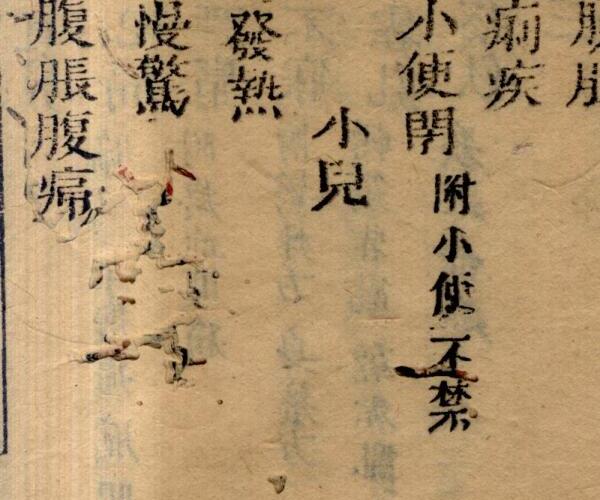 痢疾
小便閉附小便不禁
小兒
發熱
慢驚
腹脹腹痛